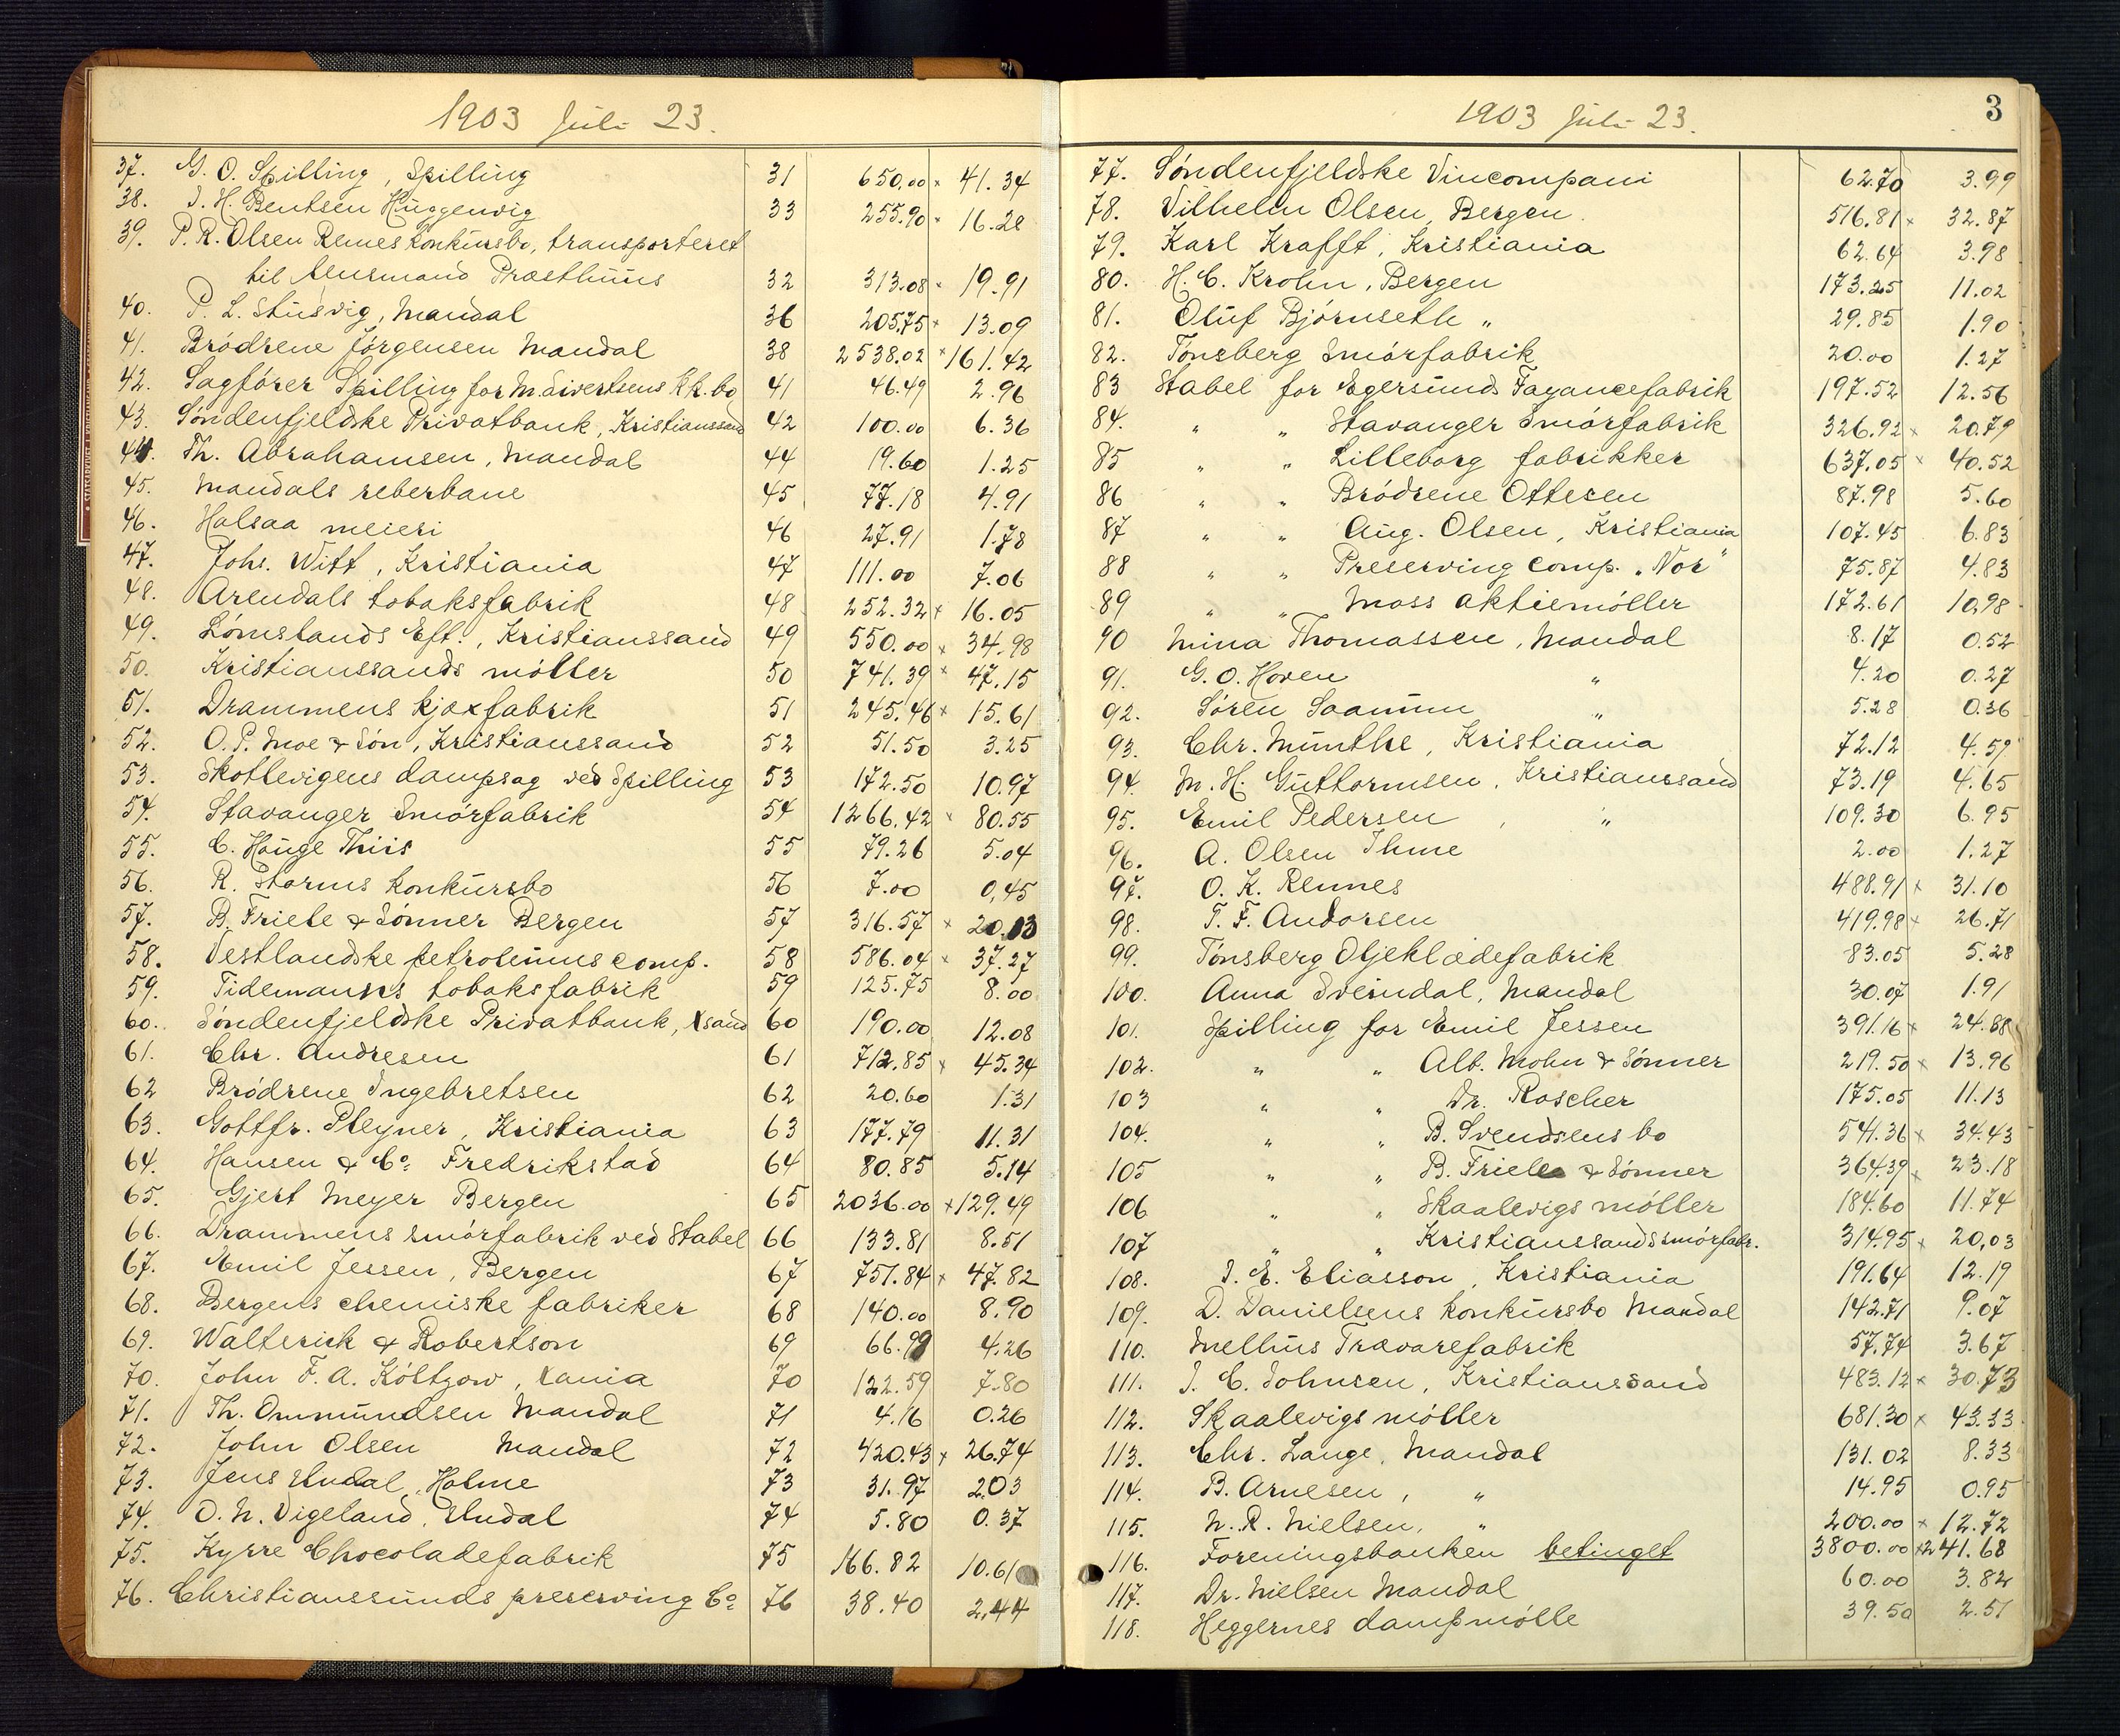 1903 Juli 23.
37. G. O. Spilling, Spilling 31 650.00 × 41.34
38. J. H. Bentsen Huggenvig 33 255.90 × 16.28
39. P. R. Olsen Remes konkursbo, transporteret
til lensmand Præsthuus 32 313.08 × 19.91
40. P. L. Stusvig, Mandal 36 205.75 × 13.09
41. Brödrene Jörgensen Mandal 38 2538.02 × 161.42
42. Sagförer Spilling for M. Sivertsens kk. bo 41 46.49 2.96
43. Söndenfjeldske Privatbank, Kristianssand 42 100.00 6.36
44. Th. Abrahamsen, Mandal 44 19.60 1.25
45. Mandals reberbane 45 77.18 4.91
46. Halsaa meieri 46 27.91 1.78
47. Johs. Witt, Kristiania 47 111.00 7.06
48. Arendals tobaksfabrik 48 252.32 × 16.05
49. Lömslands Eft., Kristianssand 49 550.00 × 34.98
50. Kristianssands möller 50 741.39 × 47.15
51. Drammens kjæxfabrik 51 245.46 × 15.61
52. O. P. Moe & Sön, Kristianssand 52 51.50 3.25
53. Skottevigens dampsag ved Spilling 53 172.50 10.97
54. Stavanger Smörfabrik 54 1266.42 × 80.55
55. C. Hauge Thiis 55 79.26 5.04
56. R. Storms konkursbo 56 7.00 0,45
57. B. Friele & Sönner Bergen 57 316.57 × 20.13
58. Vestlandske petroleums comp. 58 586.04 × 37.27
59. Tidemanns tobaksfabrik 59 125.75 8.00
60. Söndenfjeldske Privatbank, Xsand 60 190.00 12.08
61. Chr. Andresen 61 712.85 × 45.34
62 Brödrene Ingebretsen 62 20.60 1.31
63. Gottfr. Pleyner, Kristiania 63 177.79 11.31
64. Hansen & Co. Fredrikstad 64 80.85 5.14
65. Gjert Meyer Bergen 65 2036.00 × 129.49
66. Drammens smörfabrik ved Stabel 66 133.81 8.51
67. Emil Jessen, Bergen 67 751.84 × 47.82
68. Bergens chemiske fabriker 68 140.00 8.90
69. Walterick & Robertson 69 66.99 4.26
70. John F. A. Költzow, Xania 70 122.59 7.80
71. Th. Ommundsen Mandal 71 4.16 0.26
72. John Olsen Mandal 72 420.43 × 26.74
73. Jens Undal, Holme 73 31.97 2.03
74. O. N. Vigeland, Undal 74 5.80 0.37
75. Kyrre Chocoladefabrik 75 166.82 10.61
76. Christianssunds preserving Co. 76 38.40 2.44
1903 Juli 23. 3
77. Söndenfjeldske Vincompani 62.70 3.99
78. Vilhelm Olsen, Bergen. 516.81 × 32.87
79. Karl Krafft, Kristiania 62.64 3.98
80. H. C. Krohn, Bergen 173.25 11.02
81. Oluf Björnseth „ 29.85 1.90
82. Tönsberg Smörfabrik 20.00 1.27
83 Stabel for Egersunds Fayancefabrik 197.52 12.56
84. „ „ Stavanger Smörfabrik 326.92 × 20.79
85 „ „ Lilleborg fabrikker 637.05 × 40.52
86 „ „ Brödrene Ottesen 87.98 5.60
87 „ „ Aug. Olsen, Kristiania 107.45 6.83
88 „ „ Preserving comp. „Nor" 75.87 4.83
89 „ „ Moss aktiemöller 172.61 10.98
90 Mina Thomassen, Mandal 8.17 0.52
91. G. O. Hoven „ 4.20 0.27
92. Sören Saanum „ 5.28 0.36
93. Chr. Munthe, Kristiania 72.12 4.59
94. M. H. Guttormsen, Kristianssand 73.19 4.65
95. Emil Pedersen, „ 109.30 6.95
96. A. Olsen Ihme 2.00 1.27
97. O. K. Rennes 488.91 × 31.10
98. T. F. Andorsen 419.98 × 26.71
99. Tönsberg Oljeklædefabrik 83.05 5.28
100. Anna Sveindal, Mandal 30.07 1.91
101. Spilling for Emil Jessen 391.16 × 24.88
102. „ „ Alb. Mohn & Sönner 219.50 × 13.96
103 „ „ Dr. Roscher 175.05 11.13
104. „ „ B. Svendsens bo 541.36 × 34.43
105 „ „ B. Friele & Sönner 364.39 × 23.18
106 „ „ Skaalevigs möller 184.60 11.74
107 „ „ Kristianssands smörfabr. 314.95 × 20,03
108. J. E. Eliasson, Kristiania 191.64 12.19
109. D. Danielsens konkursbo Mandal 142.71 9.07
110. Mellius Trævarefabrik 57.74 3.67
111. J. C. Johnsen, Kristianssand 483.12 × 30.73
112. Skaalevigs möller 681.30 × 43.33
113. Chr. Lange, Mandal 131.02 8.33
114. B. Arnesen, „ 14.95 0.95
115. N. R. Nielsen, „ 200.00 × 12.72
116. Foreningsbanken betinget 3800.00 × 241.68
117. Dr. Nielsen Mandal 60.00 3.82
118. Heggernes dampmölle 39.50 2.51